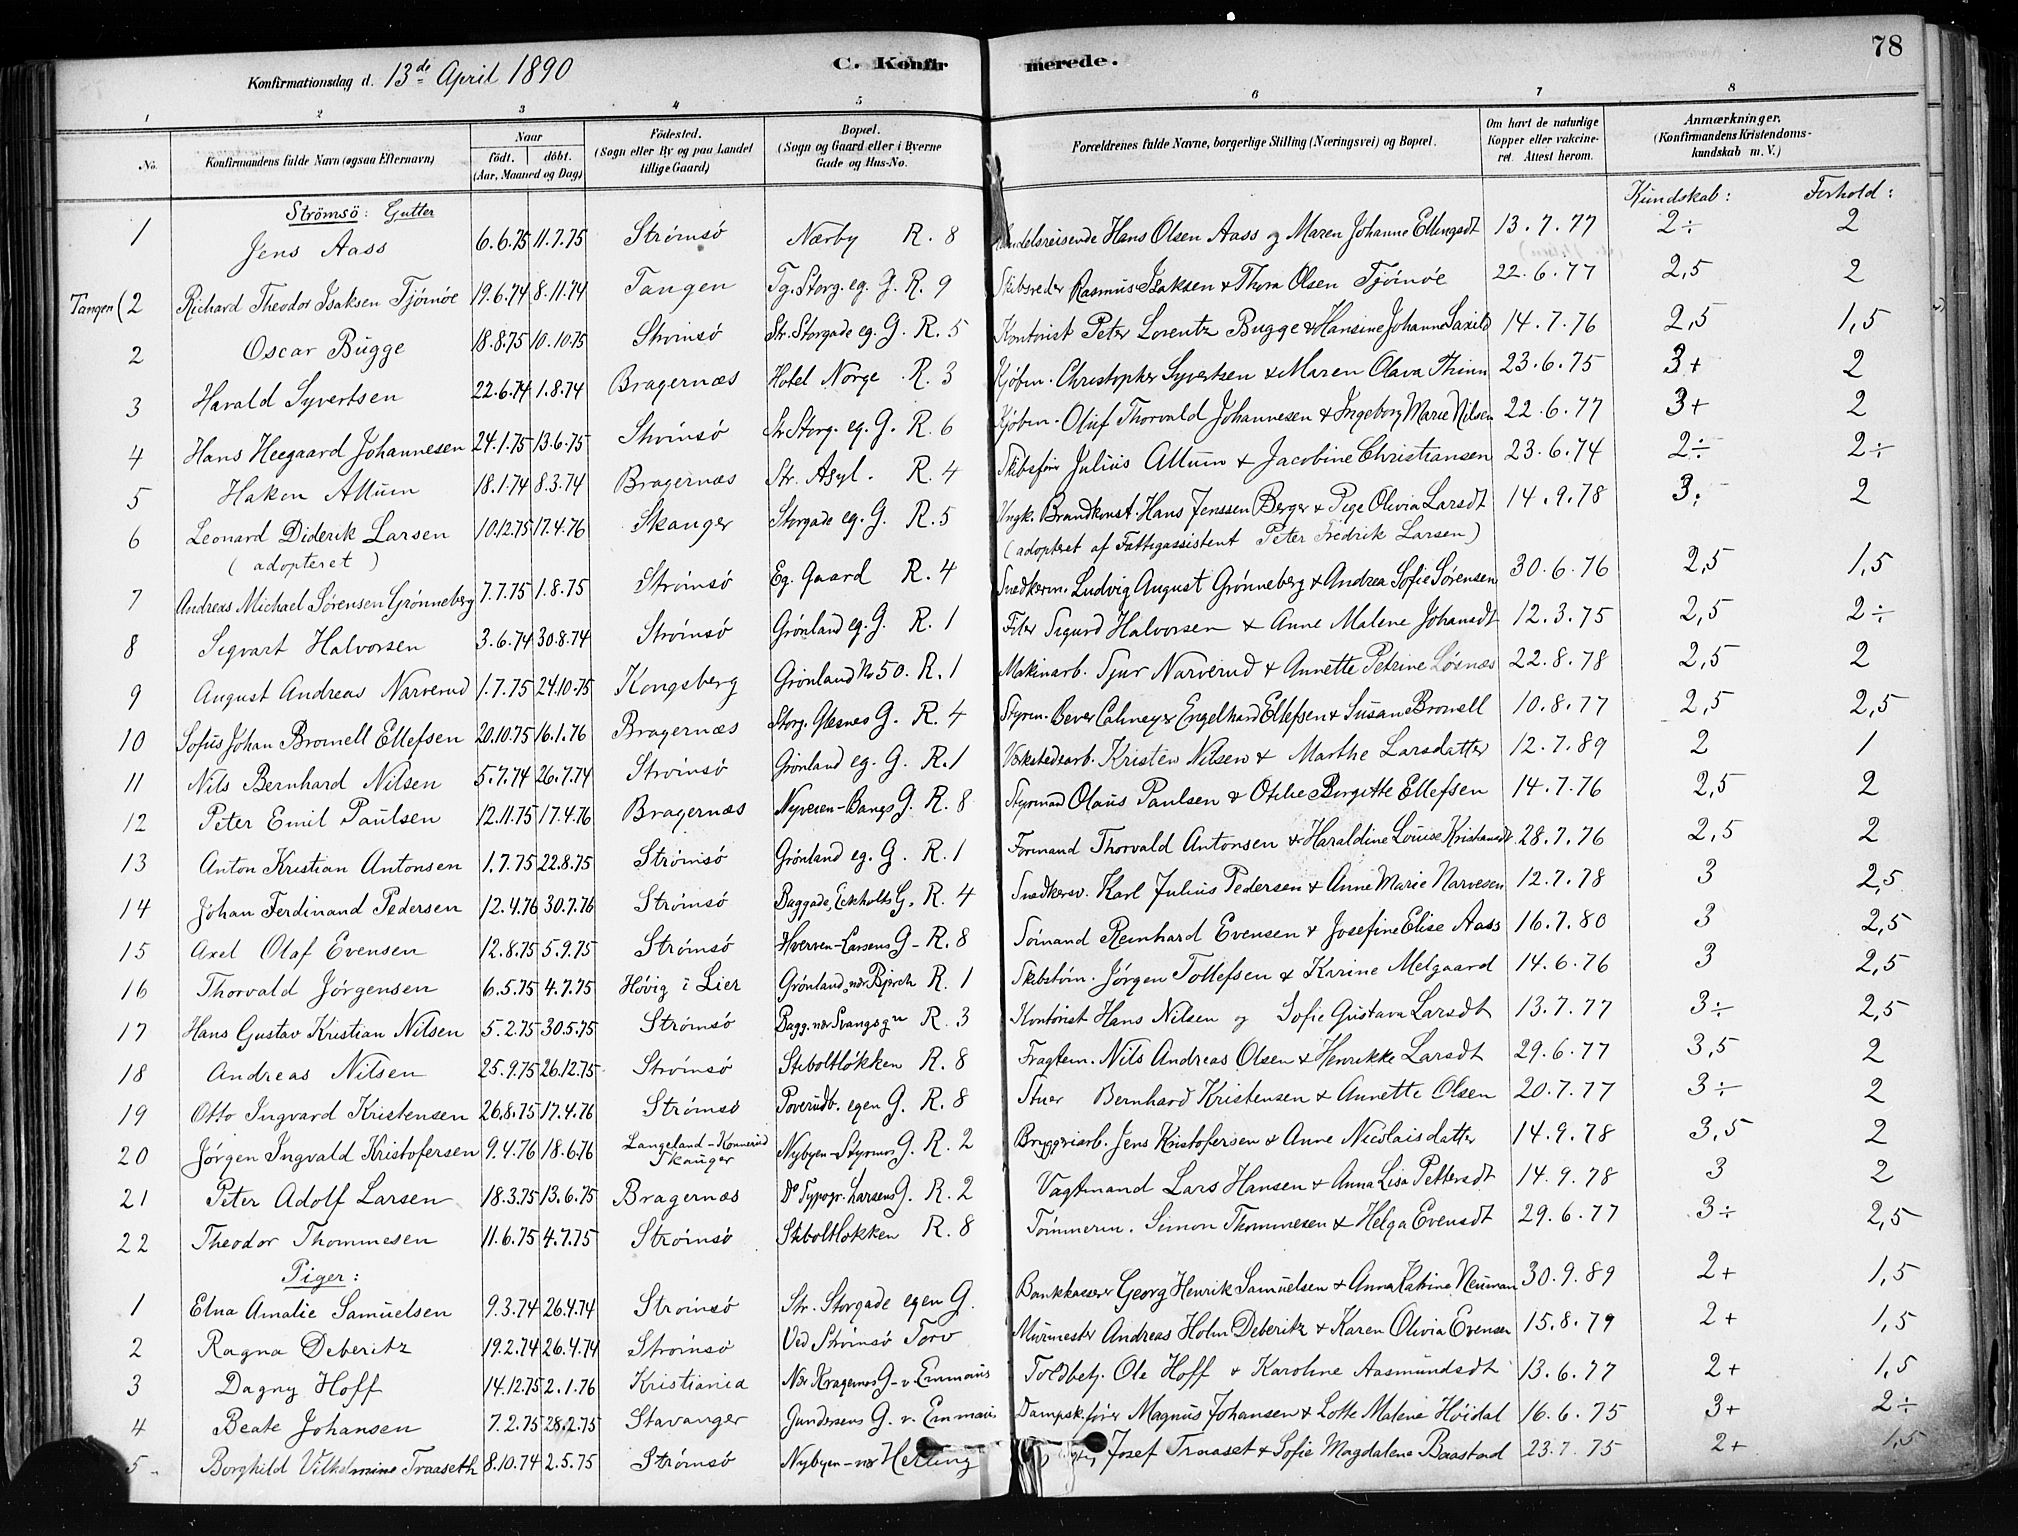 78
Konfirmationsdag d. 13de April 1890 C. Konfirmerede.
1 2 3 4 5 6 7 8
No. Konfirmandens fulde Navn (ogsaa Efternavn) Naar født. døbt. (Aar, Maaned og Dag) Fødested. (Sogn eller By og paa Landet tillige Gaard) Bopæl. (Sogn og Gaard eller i Byerne Gade og Hus-No. Forældrenes fulde Navne, borgerlige Stilling (Næringsvei) og Bopæl. Om havt de naturlige Kopper eller vakcineret. Attest herom. Anmærkninger. (Konfirmandens Kristendomskundskab m. V.)
Strömsö: Gutter Kundskab: Forhold:
1 Jens Aass 6.6.75 11.7.75 Strømsö Nærby R. 8 Handelsreisende Hans Olsen Aass og Maren Johanne Ellingsdt 13.7.77 2÷ 2
Tangen (2 Richard Theodor Isaksen Tjømöe 19.6.74 8.11.74 Tangen Tg. Storg. eg. G. R. 9 Skibsreder Rasmus Isaksen & Thora Olsen Tjømöe 22.6.77 2,5 2
2 Oscar Bugge 18.8.75 10.10.75 Strömsö Str. Storgade eg. G. R. 5 Kontorist Peter Lorentz Bugge & Hansine Johanne Saxild 14.7.76 2,5 1,5
3 Harald Syvertsen 22.6.74 1.8.74 Bragernæs Hotel Norge R. 3 Kjöbm. Christopher Syvertsen & Maren Olava Thinn 23.6.75 3+ 2
4 Hans Heegaard Johannesen 24.1.75 13.6.75 Strömsö Str Storg. eg. G. R. 6 Kjöbm. Oluf Thorvald Johannesen & Ingeborg Marie Nilsen 22.6.77 3+ 2
5 Hakon Allum 18.1.74 8.3.74 Bragernæs Str. Asyl. R. 4 Skibsfører Julius Allum & Jacobine Christiansen 23.6.74 2÷ 2÷
6 Leonard Diderik Larsen 10.12.75 17.4.76 Skauger Storgade eg. G. R. 5 Ungk. Brandkonst. Hans Jenssen Berger & Pige Olivia Larsdt 14.9.78 3. 2
(adopteret) (adopteret af Fattigassistent Peter Fredrik Larsen)
7 Andreas Michael Sørensen Grønneberg 7.7.75 1.8.75 Strømsö Eg. Gaard R. 4 Snedkerm. Ludvig August Grønneberg & Andrea Sofie Sørensen 30.6.76 2,5 1,5
8 Sigvart Halvorsen 3.6.74 30.8.74 Strömsö Grönland eg. G. R. 1 Filer Sigurd Halvorsen & Anne Malene Johansdt 12.3.75 2,5 2÷
9 August Andreas Narverud 1.7.75 24.10.75 Kongsberg Grönland No 50. R. 1 Maskinarb. Sjur Narverud & Annette Petrine Løsnæs 22.8.78 2,5 2
10 Sofus Johan Bromell Ellefsen 20.10.75 16.1.76 Bragernæs Storg. Glesnes G. R. 4 Styrm. Bever Calmeyer Engelhard Ellefsen & Susan Bromell 10.8.77 2,5 2,5
11 Nils Bernhard Nilsen 5.7.74 26.7.74 Strömsö Grönland eg. G. R. 1 Verkstedsarb. Kristen Nilsen & Marthe Larsdatter 12.7.89 2 1
12 Peter Emil Paulsen 12.11.75 17.4.76 Bragernæs Nyveien-Bangs G. R. 8 Styrmand Olaus Paulsen & Otilie Birgitte Ellefsen 14.7.76 2,5 2
13 Anton Kristian Antonsen 1.7.75 22.8.75 Strømsö Grønland eg. G. R. 1 Formand Thorvald Antonsen & Haraldine Louise Kristiansdt 28.7.76 2,5 2
14 Johan Ferdinand Pedersen 12.4.76 30.7.76 Strømsö Baggade, Eckholts G. R. 4 Snedkersv. Karl Julius Pedersen & Anne Marie Narvesen 12.7.78 3 2,5
15 Axel Olaf Evensen 12.8.75 5.9.75 Strømsö Hverven-Larsens G- R. 8 Sömand Reinhard Evensen & Josefine Elise Aass 16.7.80 3 2,5
16 Thorvald Jörgensen 6.5.75 4.7.75 Høvig i Lier Grønland, nær Bjerch R. 1 Skibstøm. Jörgen Tollefsen & Karine Melgaard 14.6.76 3 2,5
17 Hans Gustav Kristian Nilsen 5.2.75 30.5.75 Strømsö Bagg. nær Svangsgn R. 3 Kontorist Hans Nilsen og Sofie Gustava Larsdt 13.7.77 3÷ 2,5
18 Andreas Nilsen 25.9.75 26.12.75 Strømsö Stiboltløkken R. 8 Fragtem. Nils Andreas Olsen & Henrikke Larsdt 29.6.77 3,5 2
19 Otto Ingvard Kristensen 26.8.75 17.4.76 Strømsö Poverudb. egen G. R. 8 Stuer Bernhard Kristensen & Annette Olsen 20.7.77 3÷ 2
20 Jørgen Ingvald Kristofersen 9.4.76 18.6.76 Langeland-Konnerud Skauger Nybyen-Styrmos G. R. 2 Bryggeriarb. Jens Kristofersen & Anne Nicolaisdatter 14.9.78 3,5 2
21 Peter Adolf Larsen 18.3.75 13.6.75 Bragernæs Do Typogr. Larsens G. R. 2 Vagtmand Lars Hansen & Anna Lisa Pettersdt 14.9.78 3 2
22 Theodor Thommesen 11.6.75 4.7.75 Strømsö Stiboltløkken R. 8 Tömmerm. Simon Thommesen & Helga Evensdt 29.6.77 3÷ 2,5
Piger:
1 Elna Amalie Samuelsen 9.3.74 26.4.74 Strömsö Str. Storgade egen G. Bankkasserer Georg Henrik Samuelsen & Anna Katrine Neuman 30.9.89 2+ 1,5
2 Ragna Deberitz 19.2.74 26.4.74 Strömsö Ved Strömsö Torv Murmester Andreas Holm Deberitz & Karen Olivia Evensen 15.8.79 2+ 1,5
3 Dagny Hoff 14.12.75 2.1.76 Kristiania Nær Kragernes G-v Emmaus Toldbetj. Ole Hoff & Karoline Aasmundsdt 13.6.77 2+ 1,5
4 Beate Johansen 7.2.75 28.2.75 Stavanger Gundersens G. v. Emmaus Dampsk.fører Magnus Johansen & Lotte Malene Höidal 16.6.75 3+ 2÷
5 Borghild Vilhelmine Traaseth 8.10.74 2.5.75 Strømsö Nybyen-nær Herling Josef Traaset & Sofie Magdalene Baastad 23.7.75 2+ 1,5